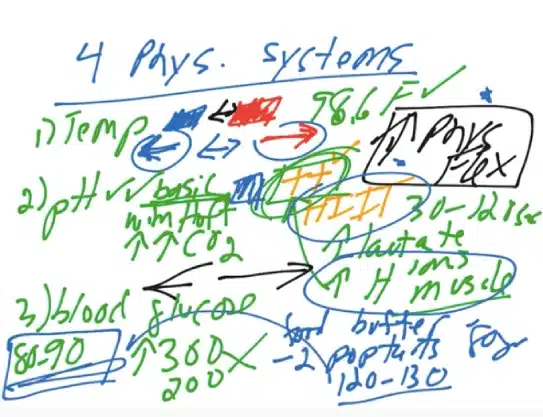 4 Phys. systems
1) Temp 98.6 F
↑↑ Phys Flex
2) pH basic
HIIT 30-120sec
↑↑ CO2
↑ lactate
↑ H ions muscle
3) blood glucose
80-90 ↑ 300
200
food butter
-2 poptarts
120-130